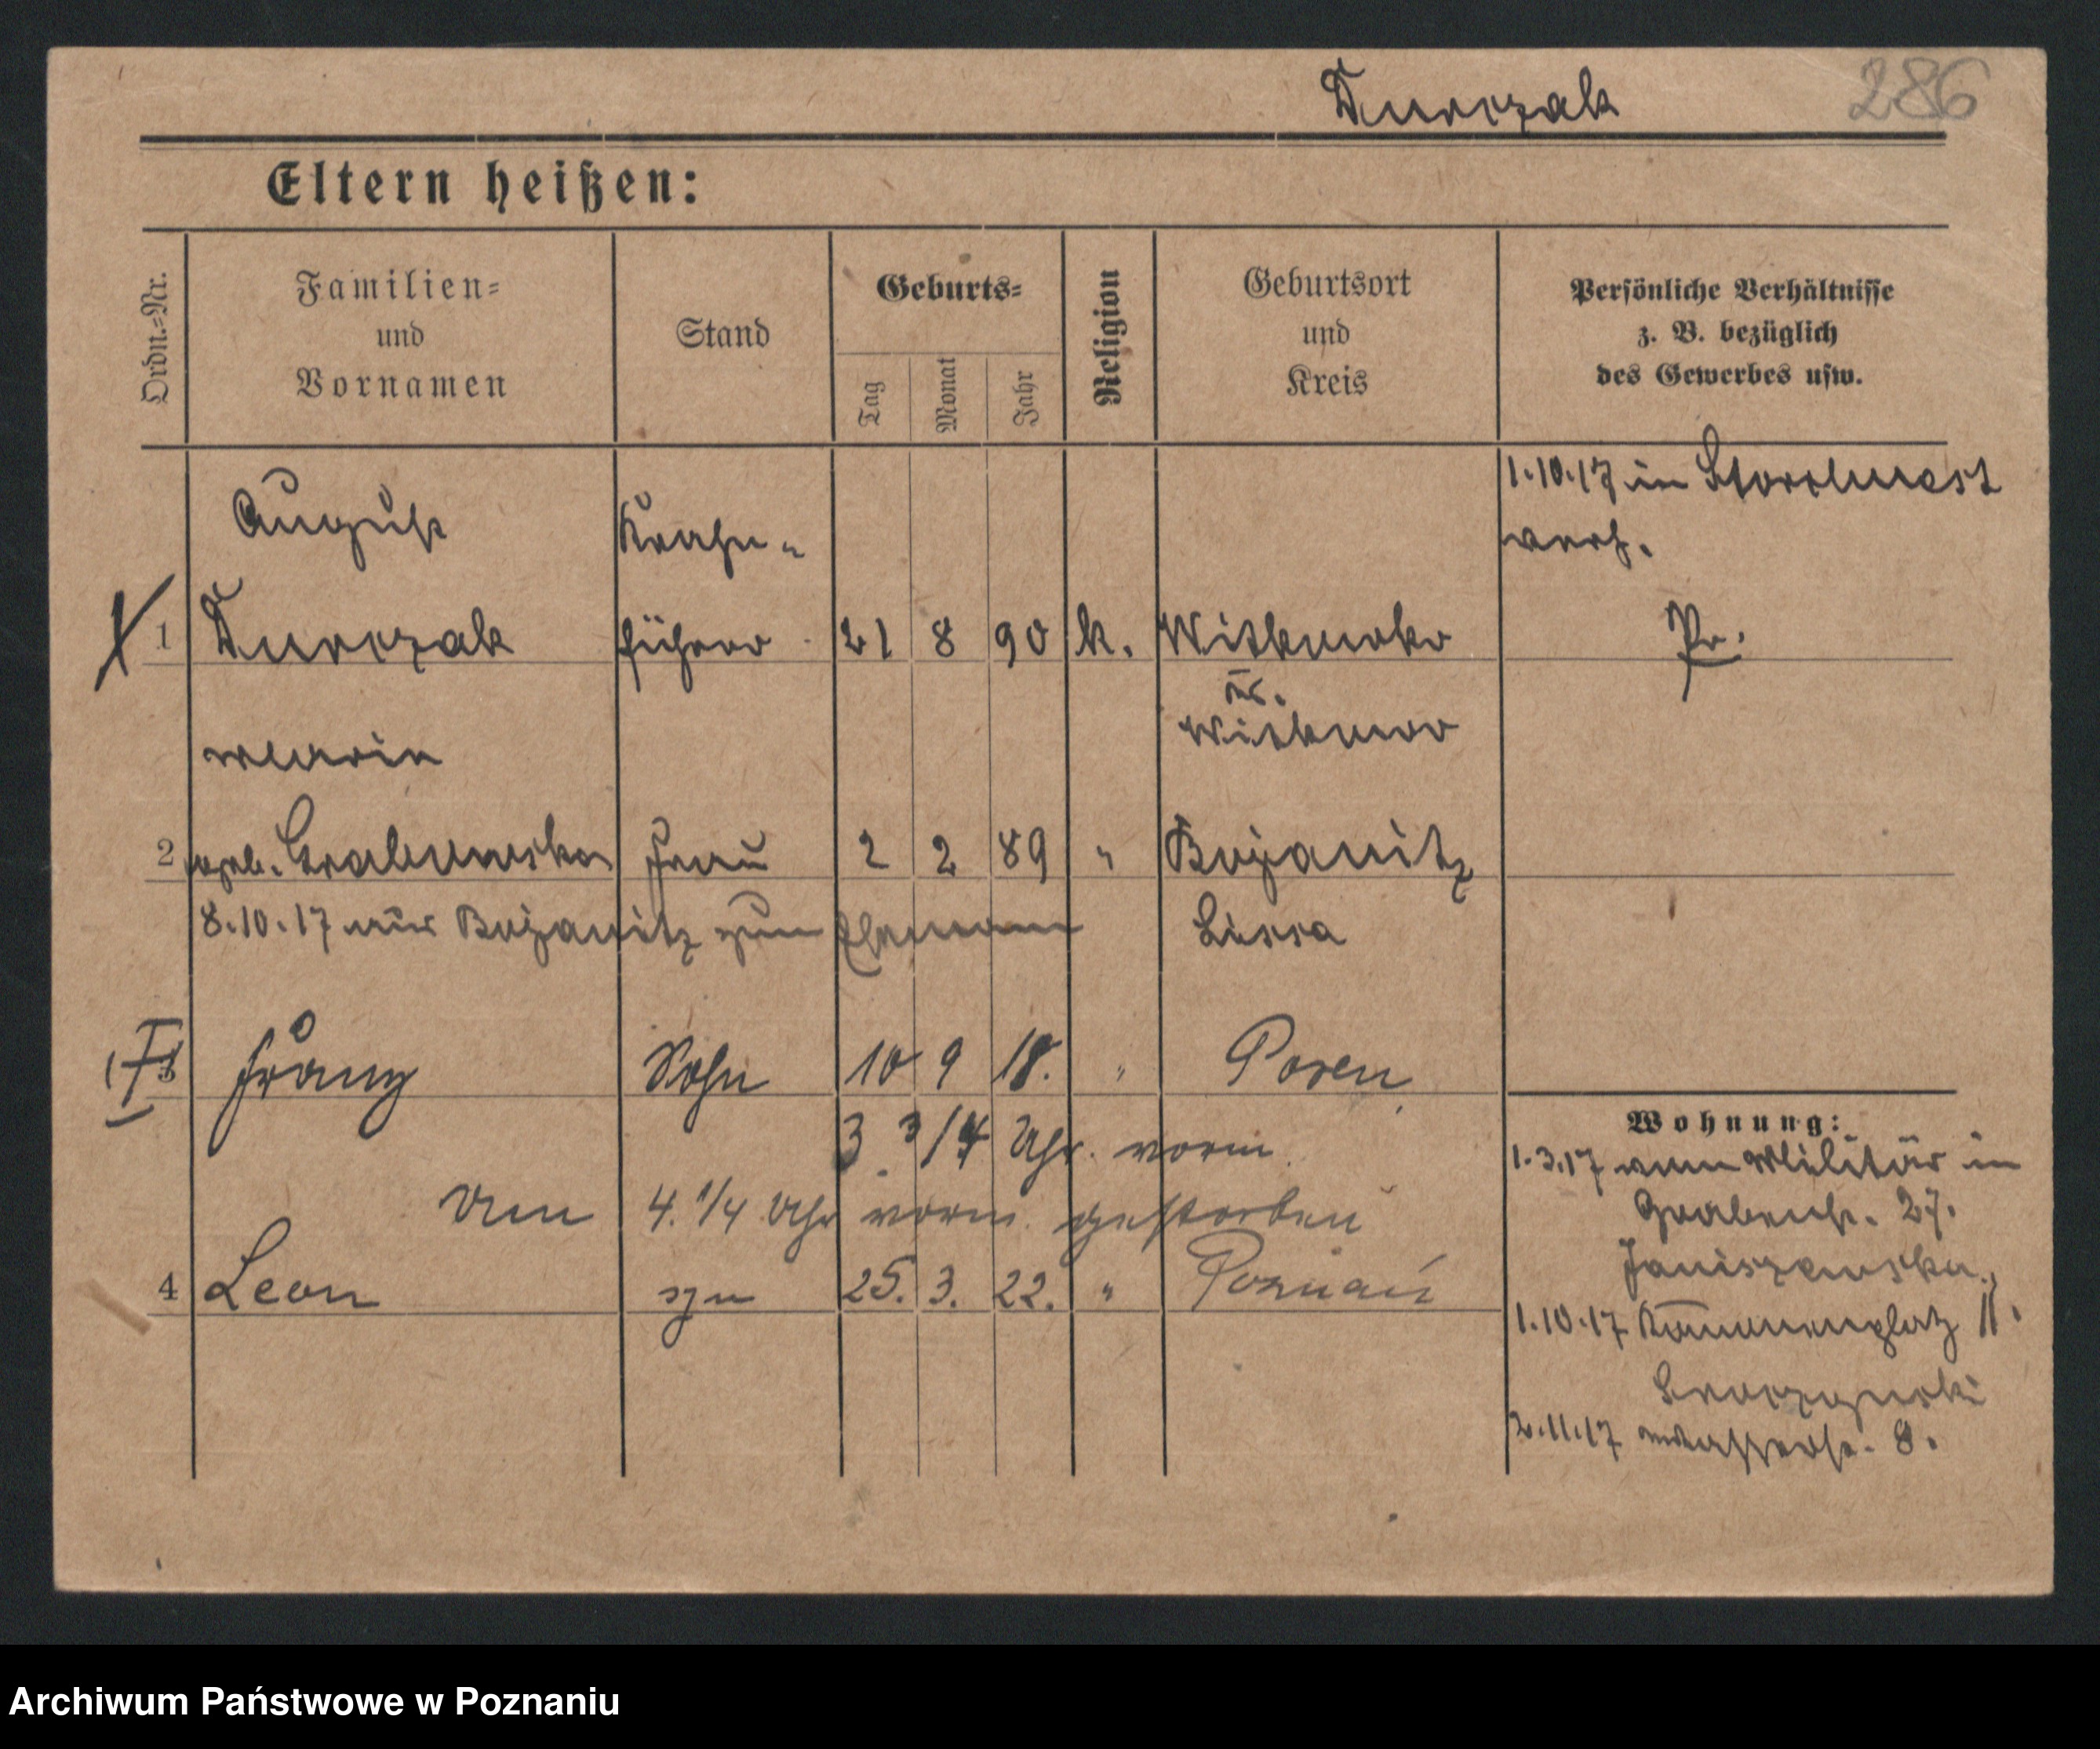 Durczak 286
Eltern heißen:
Ordn.-Nr.
Familien-
und
Vornamen
Stand
Geburts-
Tag
Monat
Jahr
Religion
Geburtsort
und
Kreis
Persönliche Verhältnisse
z. B. bezüglich
des Gewerbes usw.
1.10.17 in Storchnest
verh.
August Krahn-
1 Durczak führer 21 8 90 k. Witkowko Pr.
Kr.
Witkowo
Maria
2 geb. Grabowska Frau 2 2 89 " Bojanitz
8.10.17 aus Bojanitz zum Ehemann Lissa
3 Franz Sohn 10 9 18. " Posen
3 3/4 Uhr vorm.
Um 4. 1/4 Uhr vorm. gestorben
4 Leon syn 25. 3. 22. " Poznań
Wohnung:
1.3.17 vom Militär in
Grabenstr. 27.
Janiszewska,
1.10.17 11.
Skorzynski
2.11.17 Wasserstr. 8.
Archiwum Państwowe w Poznaniu